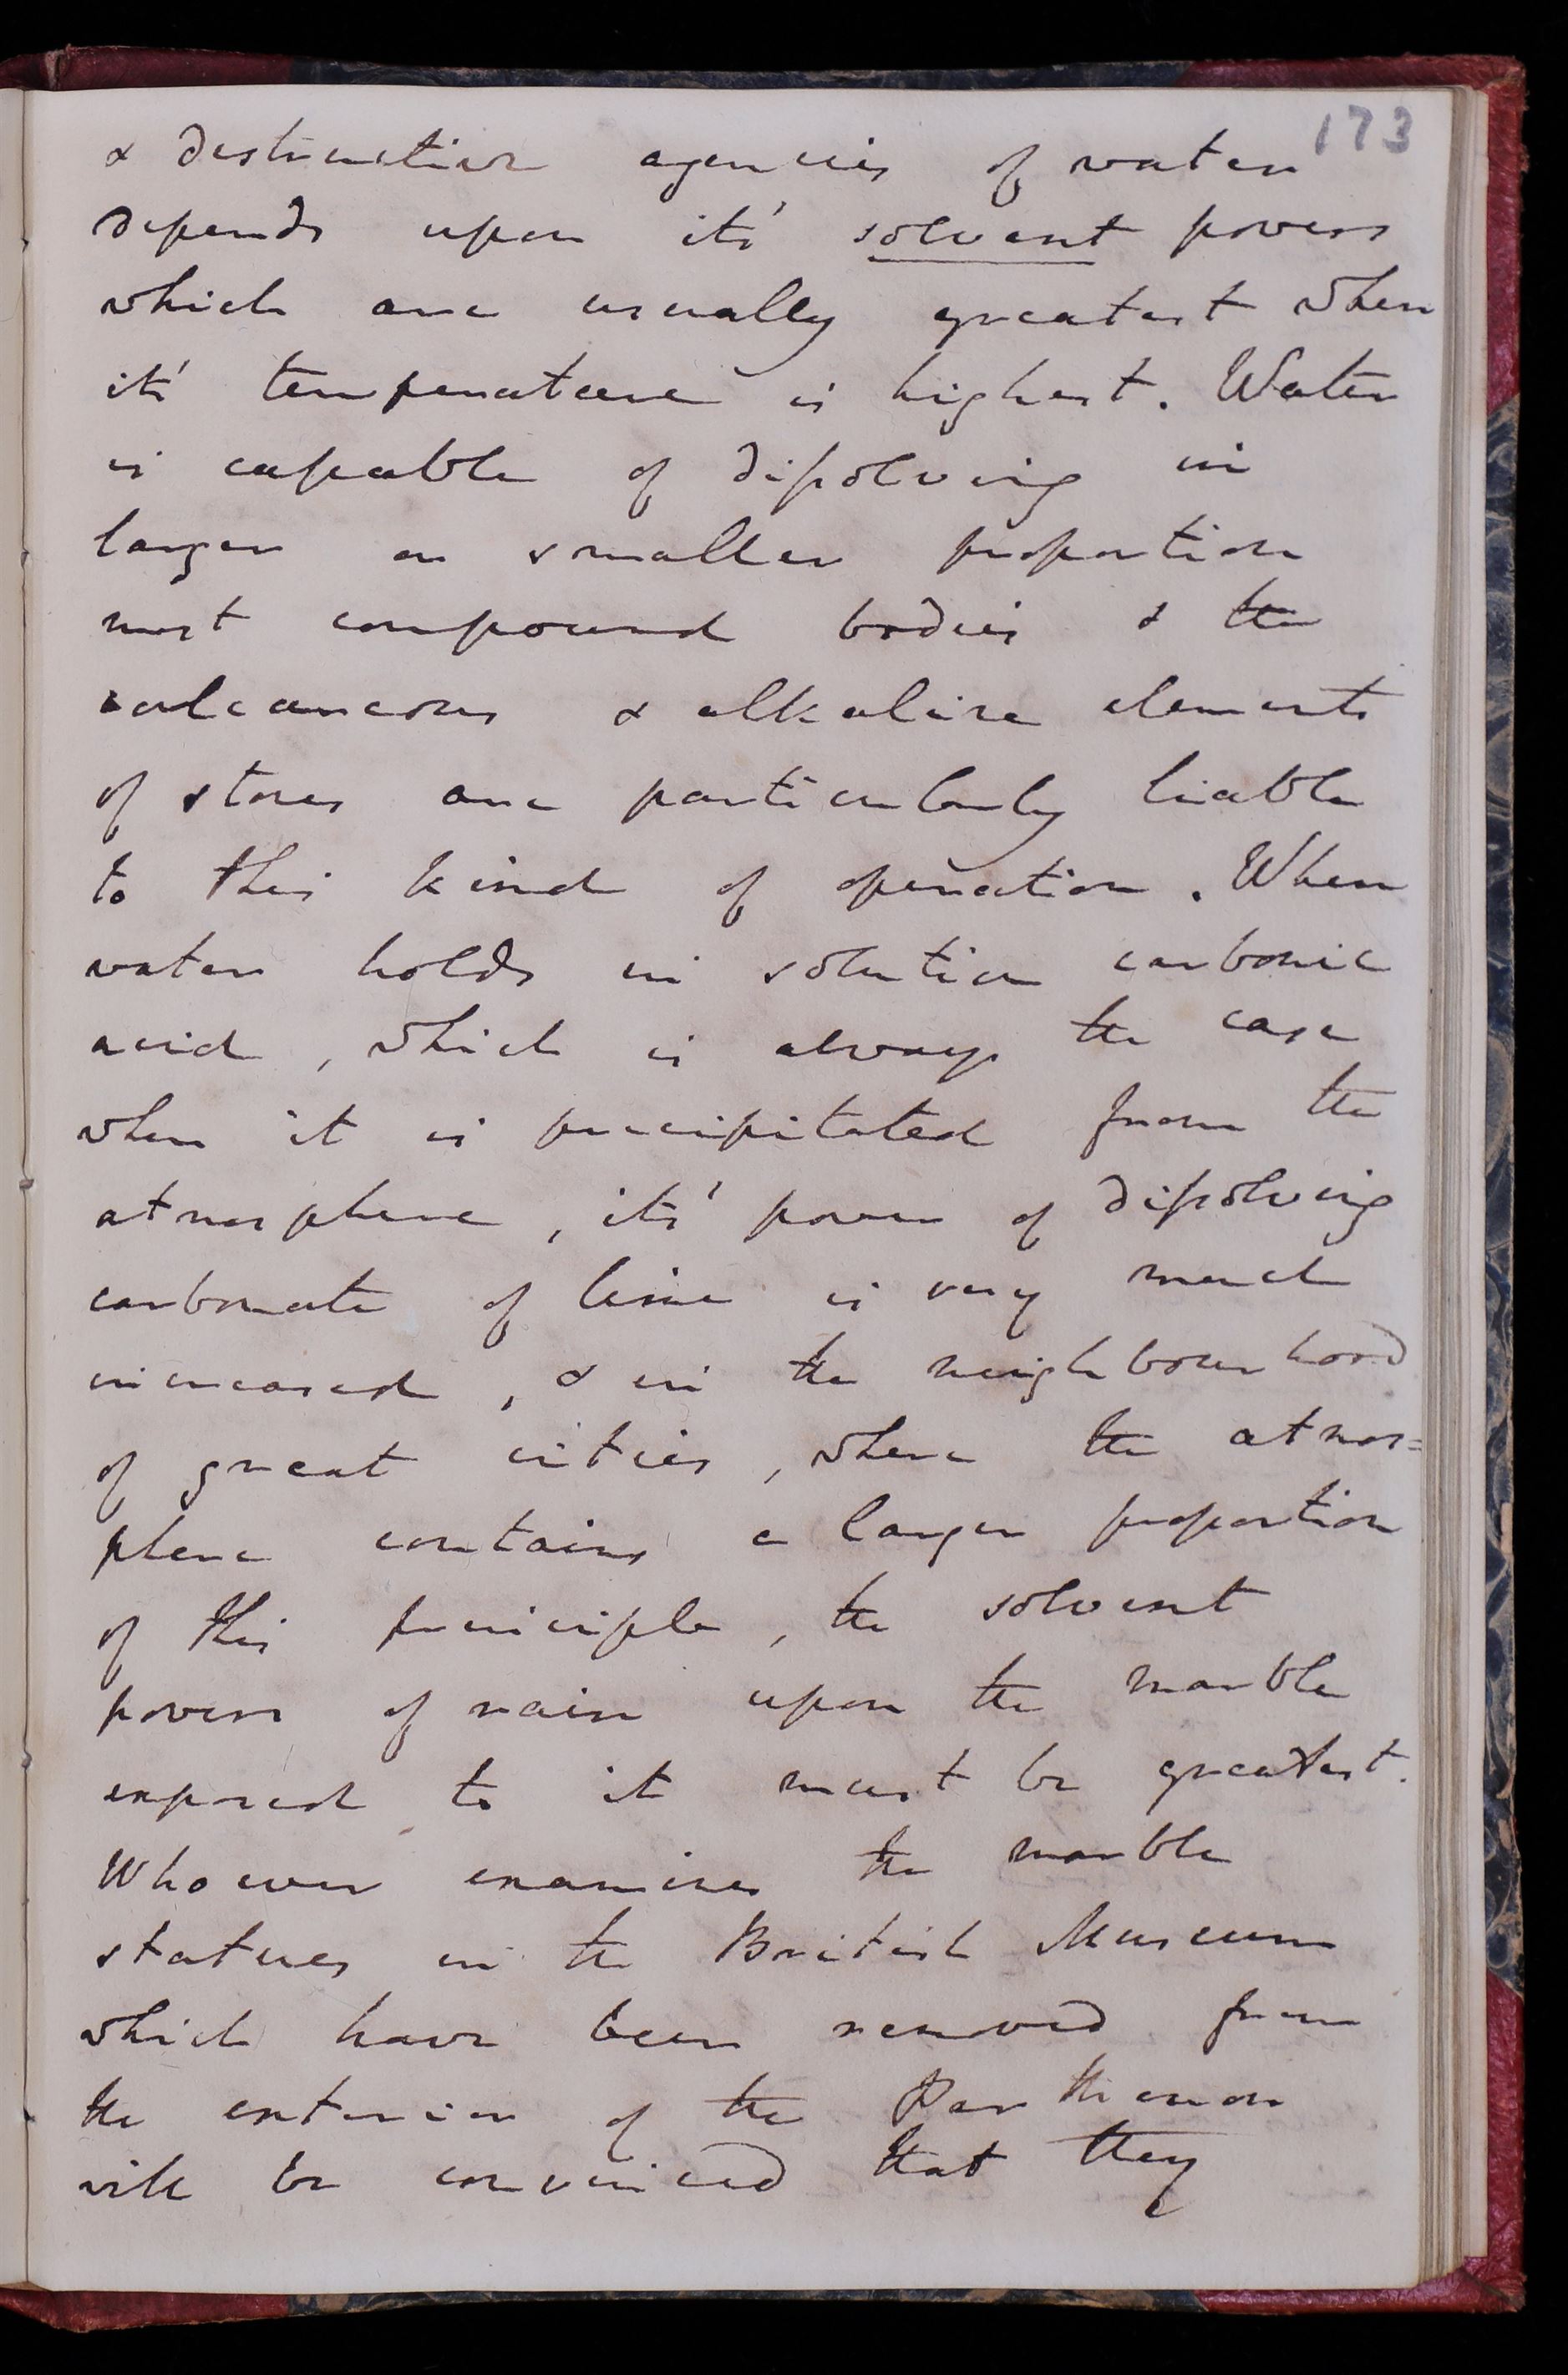 173
& destructive agencies of water
depends upon its' solvent powers
which are usually greatest when
it's temperature is highest. Water
is capable of dissolving in
larger or smaller proportion
most compound bodies & the
calcareous & alkaline elements
of stones are particularly liable
to this kind of operation. When
water holds in solution carbonic
acid, which is always the case
when it is precipitated from the
atmosphere, its' power of dissolving
carbonate of lime is very much
increased, & in the neighbourhood
of great cities, where the atmos=
phere contains a larger proportion
of this principle, the solvent
powers of rain upon the marble
exposed to it must be greatest.
Whoever examines the marble
statues in the British Museum
which have been removed from
the exterior of the Parthenon
will be convinced that they